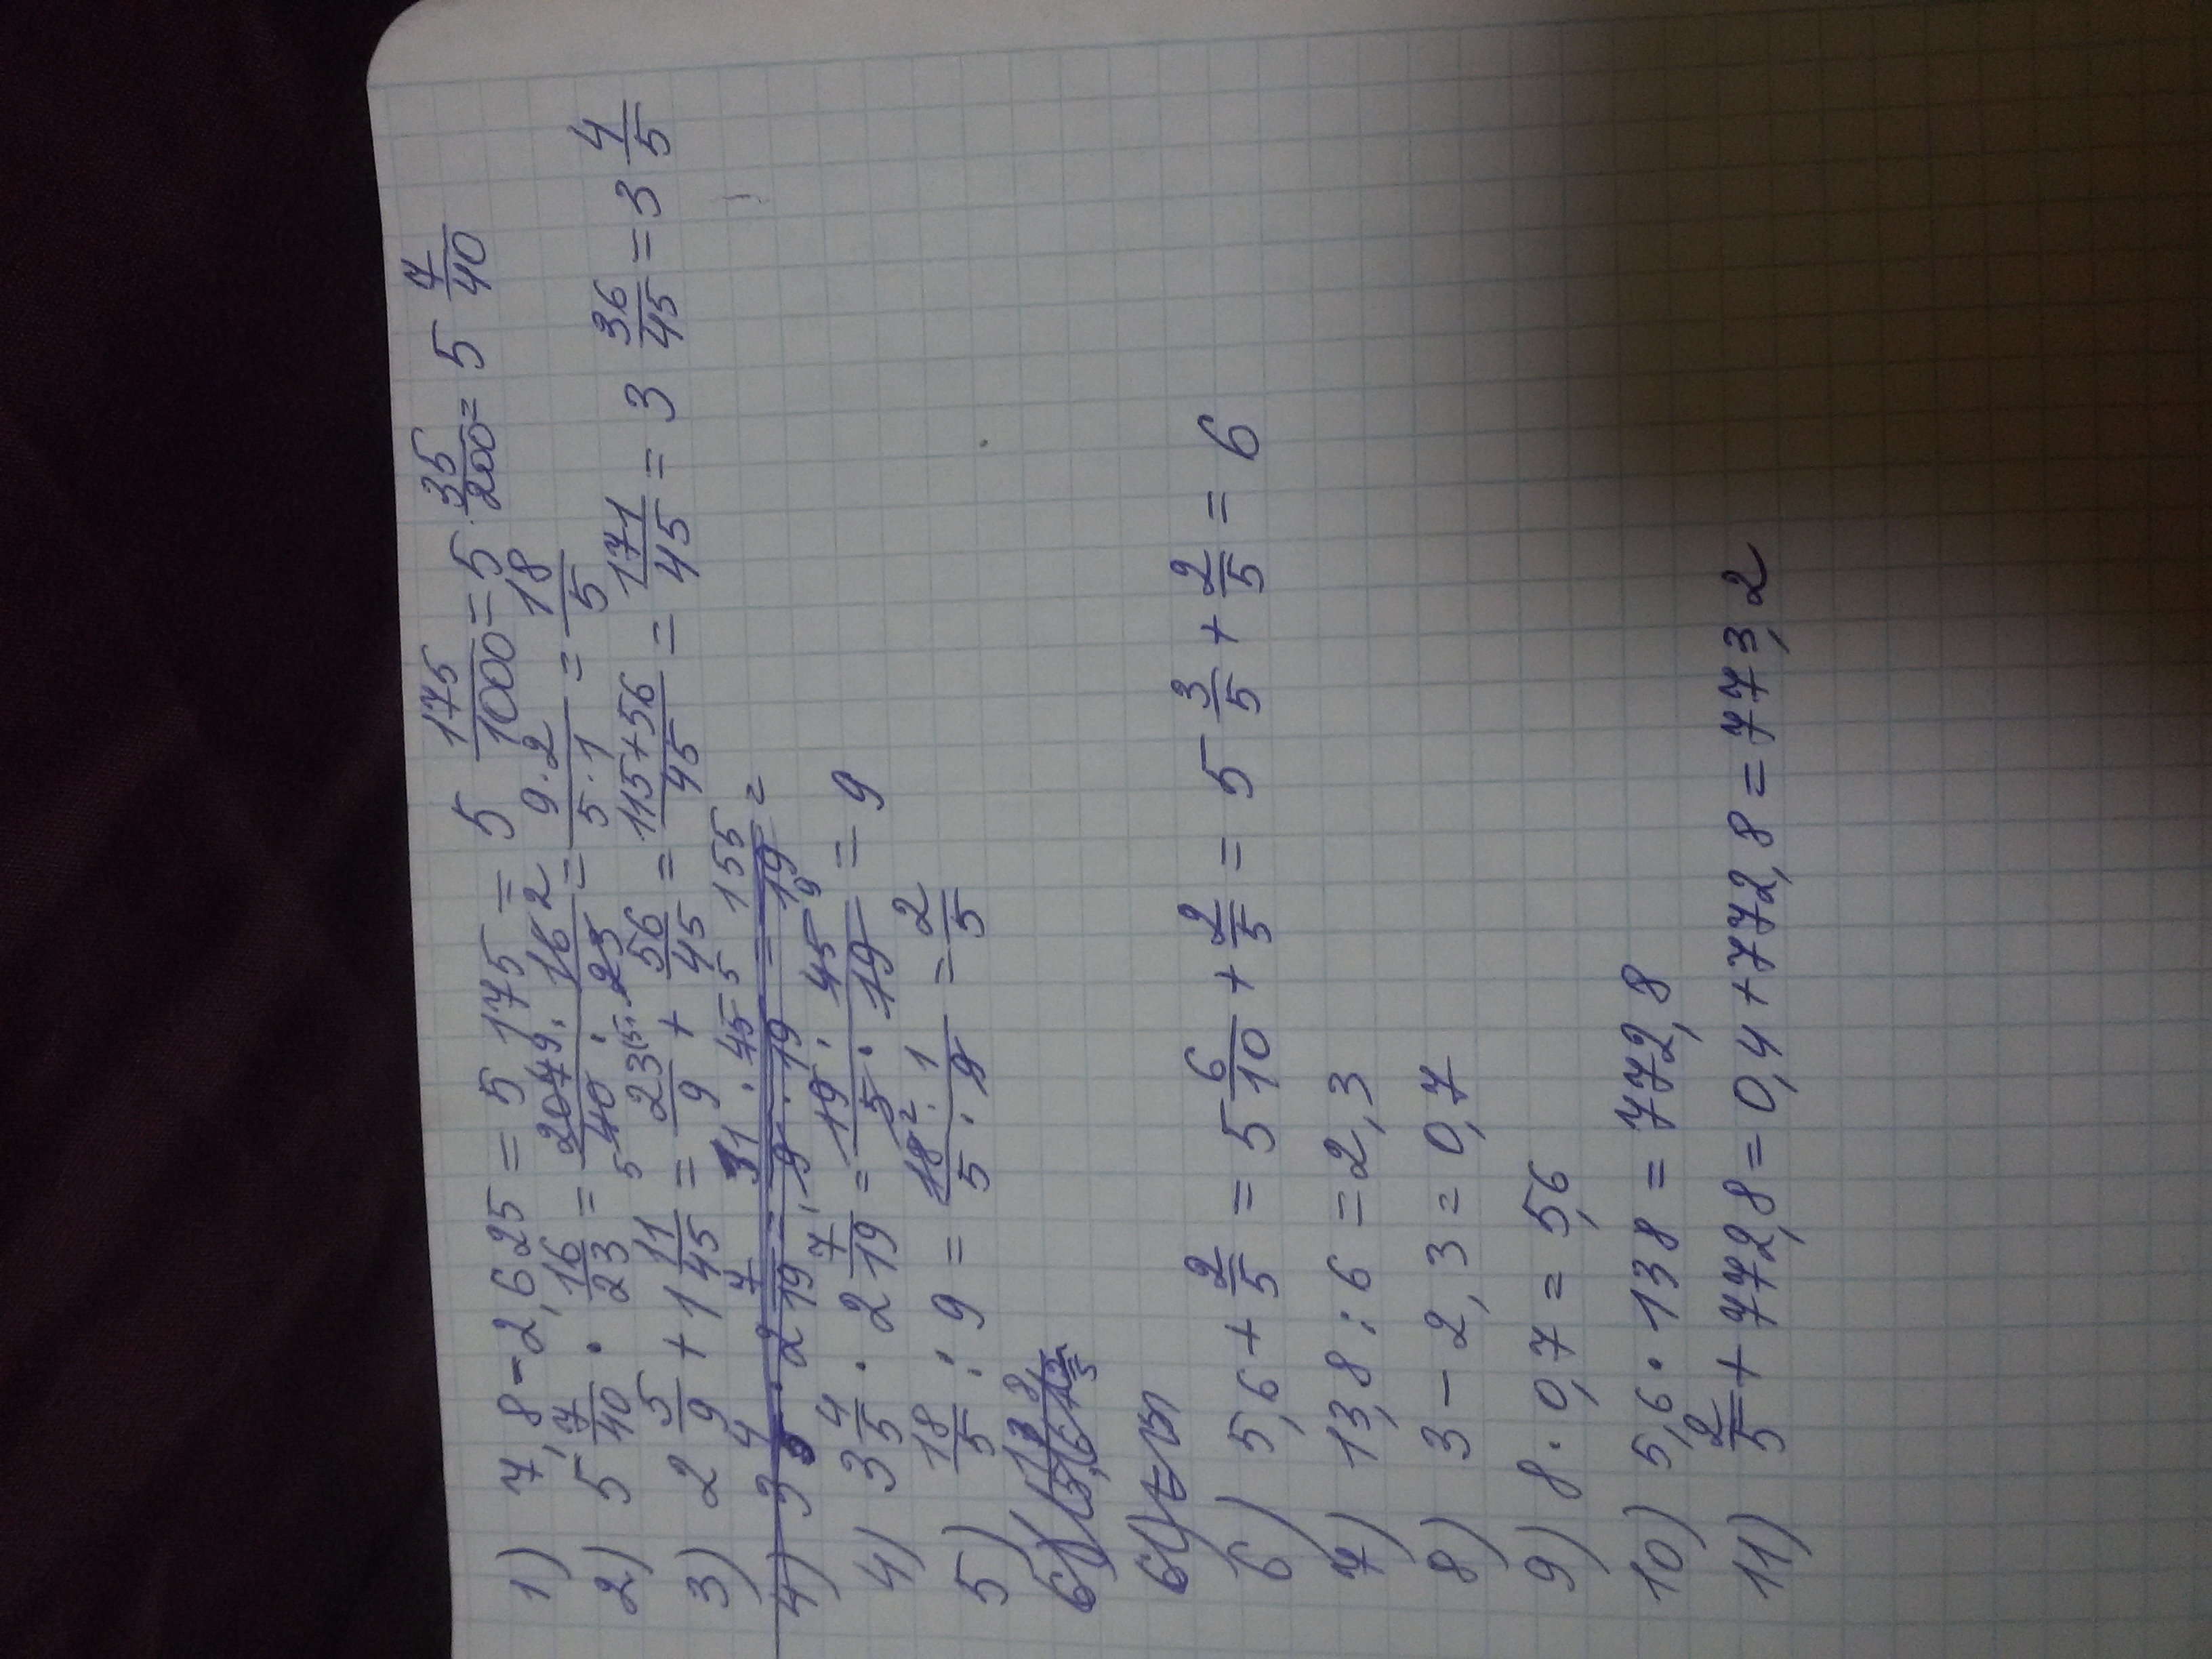 1) 7,8-2,625 = 5,175 = 5 175/1000 = 5 35/200 = 5 7/40
2) 5 7/40 · 16/23 = 207 9 · 16 2 / 5 40 · 23 = 9·2/5·1 = 18/5
3) 2 5/9 + 1 11/45 = 23(5/9 + 56/45 = 115+56/45 = 171/45 = 3 36/45 = 3 4/5
4) 3 4/5 · 2 7/19 = 19 · 45 9 / 5 · 19 = 9
5) 18/5 : 9 = 18 2 · 1 / 5 · 9 = 2/5
6) 5,6 + 2/5 = 5 6/10 + 2/5 = 5 3/5 + 2/5 = 6
7) 13,8 : 6 = 2,3
8) 3 - 2,3 = 0,7
9) 8 · 0,7 = 5,6
10) 5,6 · 138 = 772,8
11) 2/5 + 772,8 = 0,4 + 772,8 = 773,2